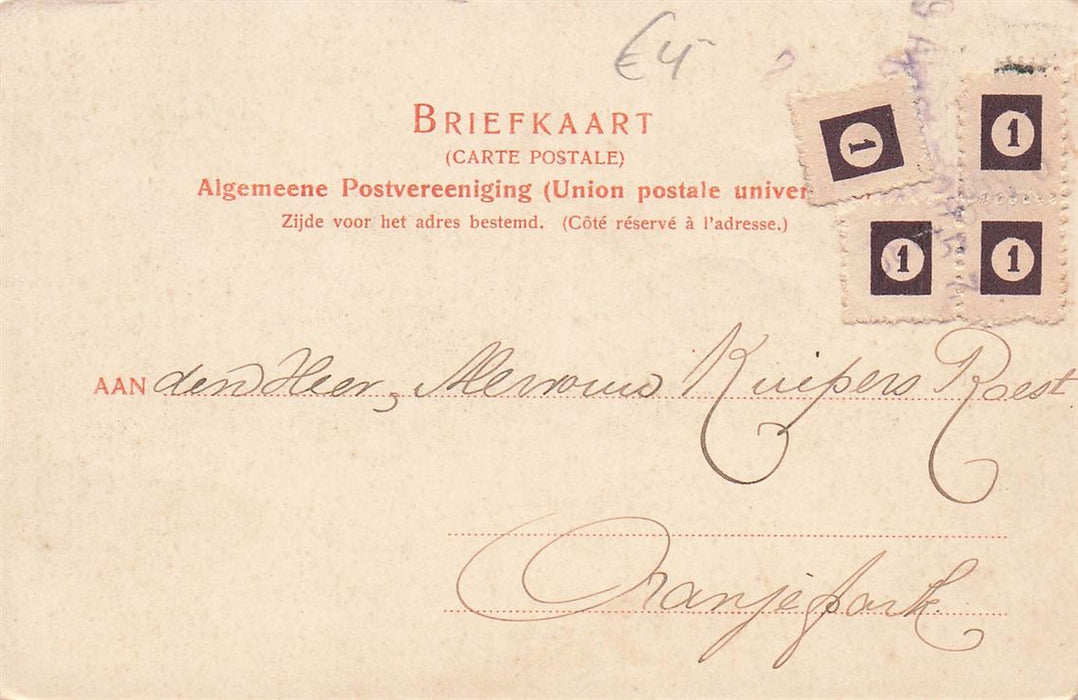 €4-
BRIEFKAART
(CARTE POSTALE)
Algemeene Postvereeniging (Union postale univer
Zijde voor het adres bestemd. (Côté réservé à l'adresse.)
1
1
1
1
AAN den Heer, Mevrouw Kuipers Roest
Oranjepark.